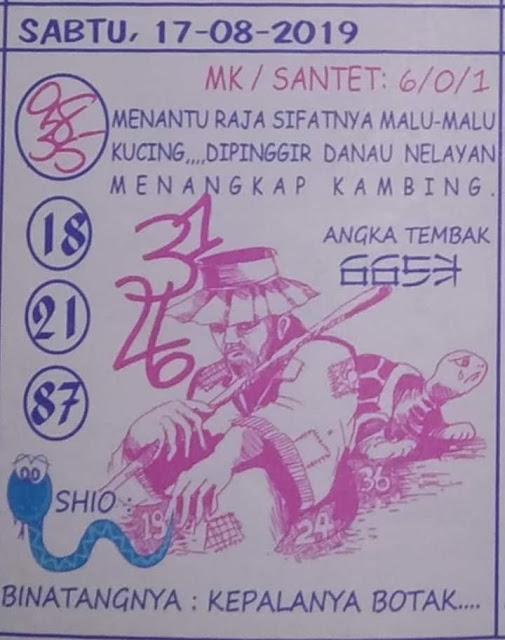 SABTU, 17-08-2019
MK / SANTET: 6/0/1
MENANTU RAJA SIFATNYA MALU-MALU
KUCING,,,,DIPINGGIR DANAU NELAYAN
MENANGKAP KAMBING.
18
21
87
31
26
ANGKA TEMBAK
6657
SHIO :
19
24
36
BINATANGNYA : KEPALANYA BOTAK....